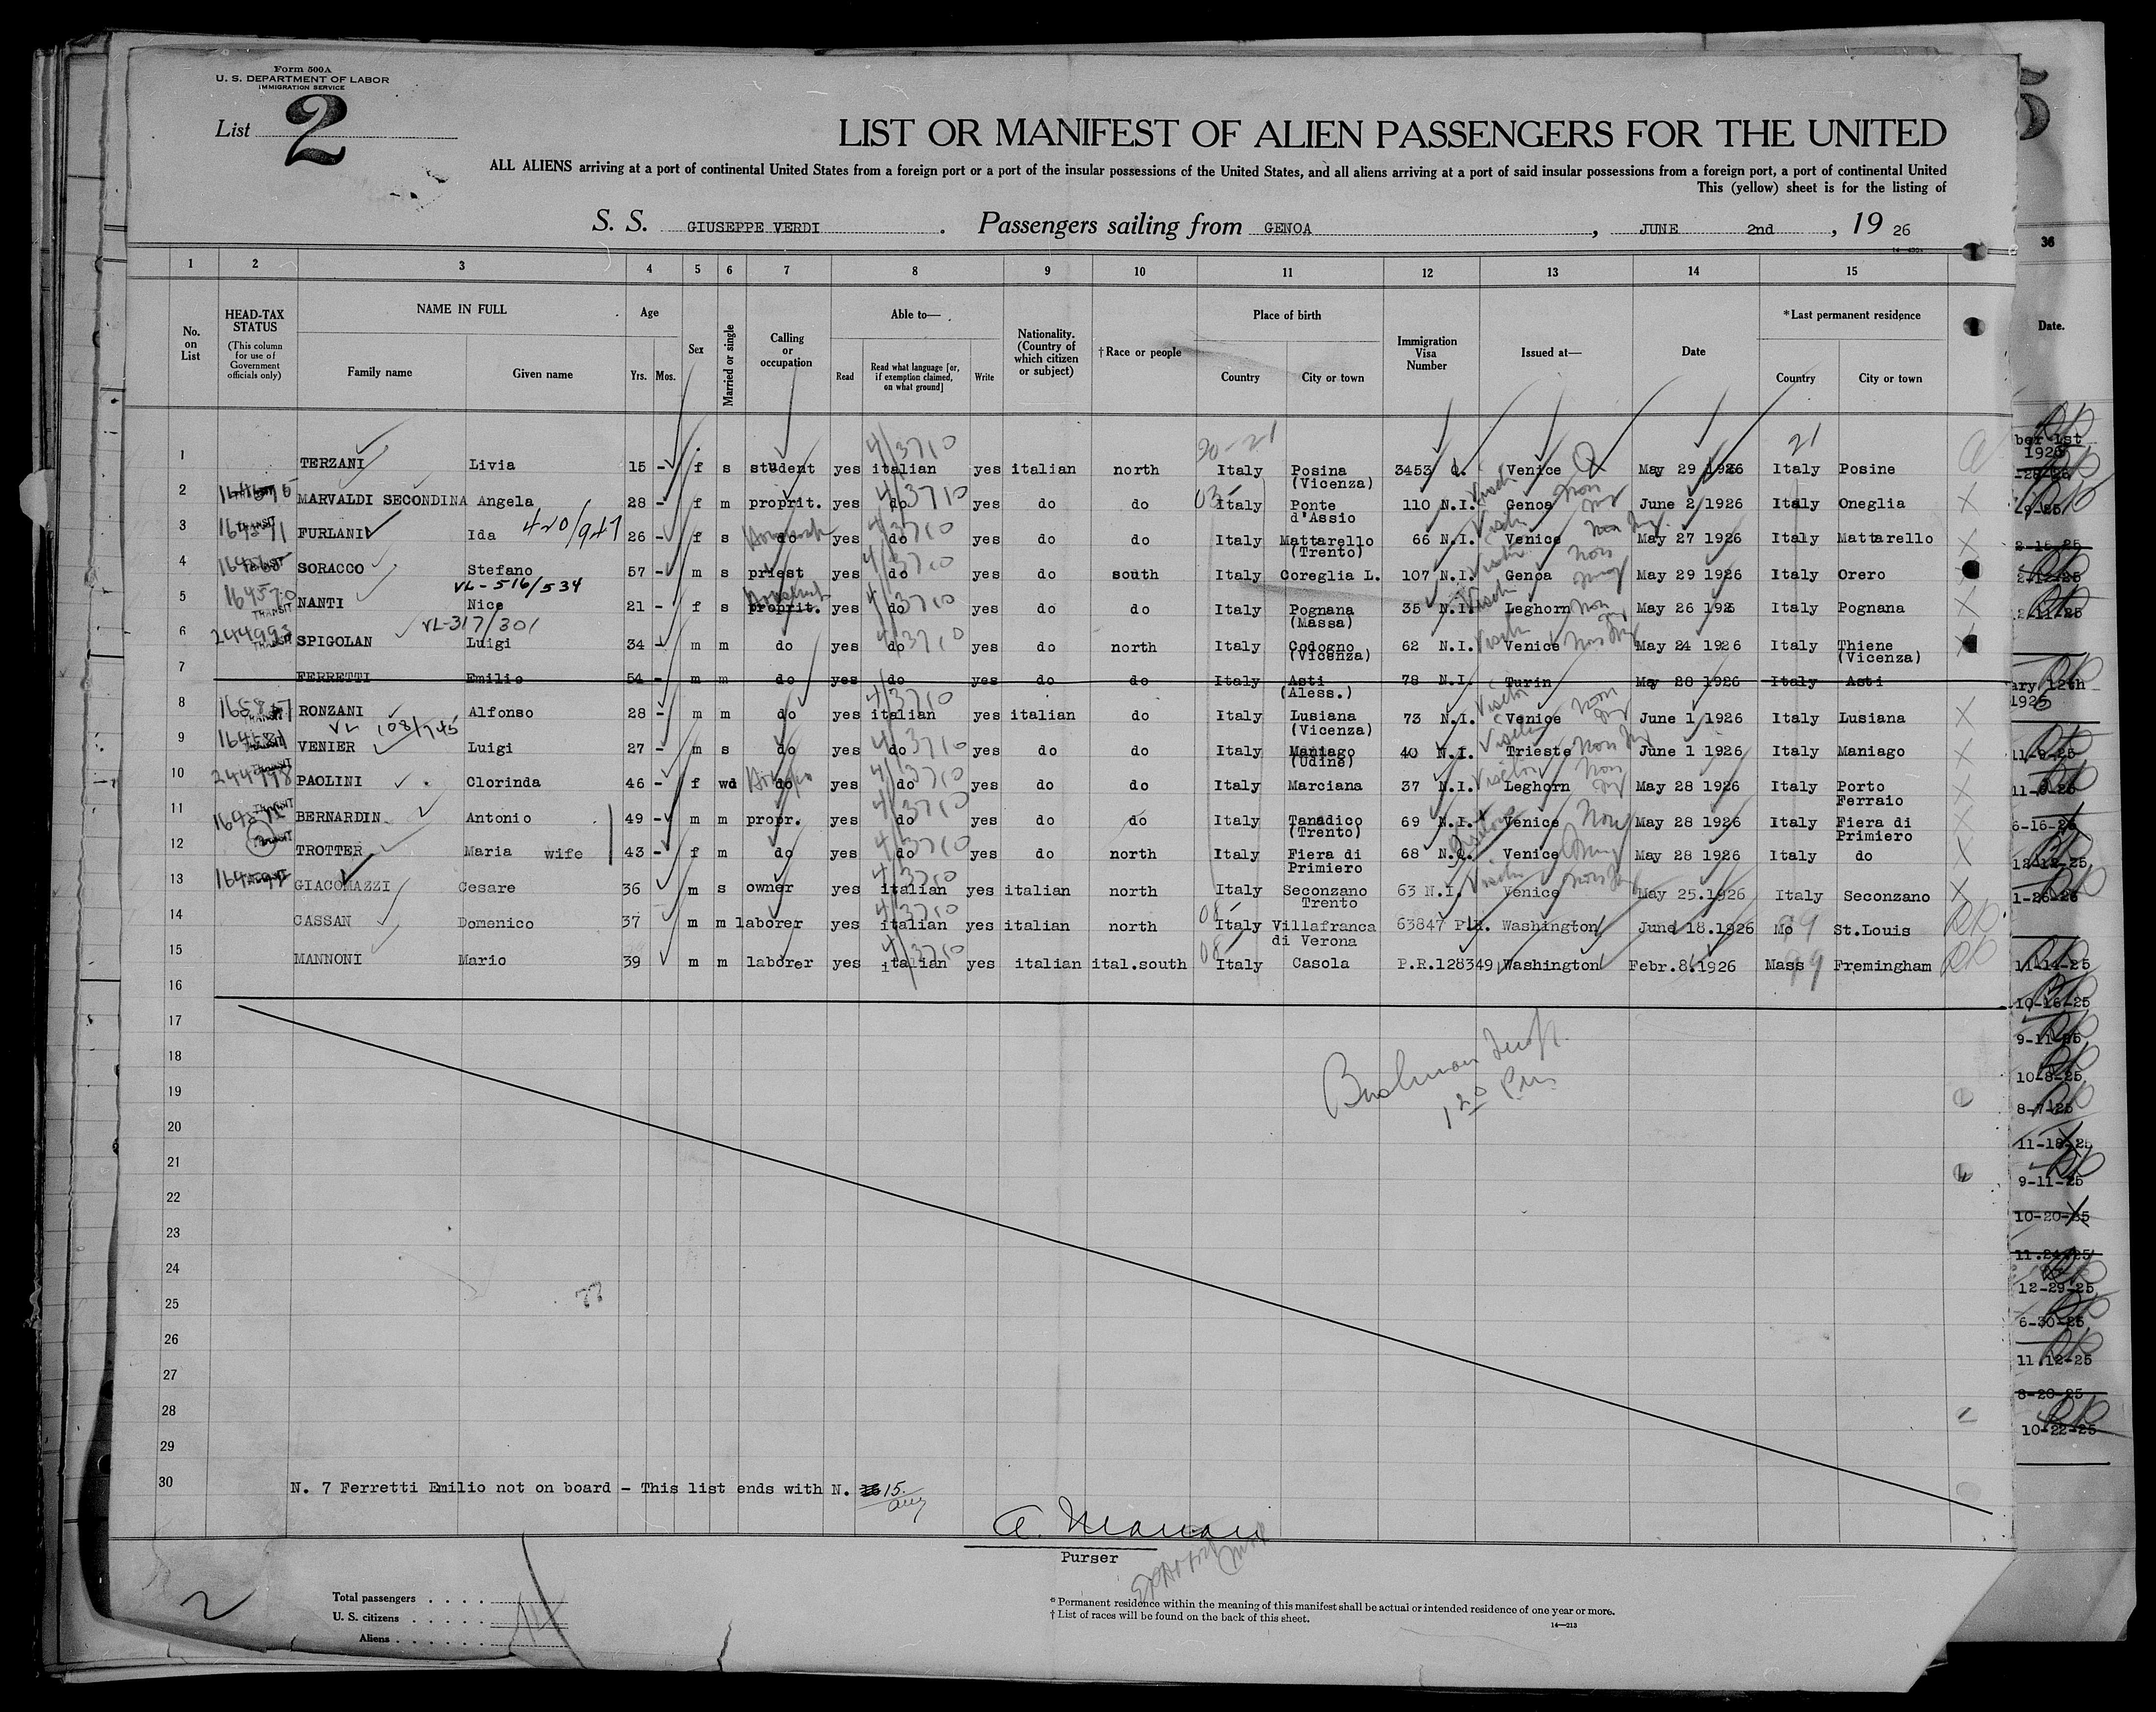 Form 500A
U. S. DEPARTMENT OF LABOR
IMMIGRATION SERVICE
List 2
LIST OR MANIFEST OF ALIEN PASSENGERS FOR THE UNITED
ALL ALIENS arriving at a port of continental United States from a foreign port or a port of the insular possessions of the United States, and all aliens arriving at a port of said insular possessions from a foreign port, a port of continental United
This (yellow) sheet is for the listing of
S. S. GIUSEPPE VERDI . Passengers sailing from GENOA , JUNE 2nd , 19 26
36
1 2 3 4 5 6 7 8 9 10 11 12 13 14 15
No. on List
HEAD-TAX STATUS (This column for use of Government officials only)
NAME IN FULL
Family name Given name
Age
Yrs. Mos.
Sex
Married or single
Calling or occupation
Able to—
Read Read what language [or, if exemption claimed, on what ground] Write
Nationality. (Country of which citizen or subject)
†Race or people
Place of birth
Country City or town
Immigration Visa Number
Issued at—
Date
*Last permanent residence
Country City or town
Date.
1 TERZANI Livia 15 - f s student yes italian yes italian north Italy Posina (Vicenza) 3453 Q. Venice May 29 1926 Italy Posine
2 MARVALDI SECONDINA Angela 28 - f m proprit. yes do yes do do Italy Ponte d'Assio 110 N.I. Genoa June 2 1926 Italy Oneglia
3 FURLANI Ida 420/947 26 - f s do yes do yes do do Italy Mattarello (Trento) 66 N.I. Venice May 27 1926 Italy Mattarello
4 SORACCO Stefano 57 - m s priest yes do yes do south Italy Coreglia L. 107 N.I. Genoa May 29 1926 Italy Orero
VL-516/534
5 NANTI Nice 21 - f s proprit. yes do yes do do Italy Pognana (Massa) 35 N.I. Leghorn May 26 1926 Italy Pognana
VL-317/301
6 244993 SPIGOLAN Luigi 34 - m m do yes do yes do north Italy Codogno (Vicenza) 62 N.I. Venice May 24 1926 Italy Thiene (Vicenza)
7 FERRETTI Emilio 54 - m m do yes do yes do do Italy Asti (Aless.) 78 N.I. Turin May 28 1926 Italy Asti
8 RONZANI Alfonso 28 - m m do yes italian yes italian do Italy Lusiana (Vicenza) 73 N.I. Venice June 1 1926 Italy Lusiana
VL 108/745
9 VENIER Luigi 27 - m s do yes do yes do do Italy Maniago (Udine) 40 N.I. Trieste June 1 1926 Italy Maniago
10 PAOLINI Clorinda 46 - f wd do yes do yes do do Italy Marciana 37 N.I. Leghorn May 28 1926 Italy Porto Ferraio
11 BERNARDIN Antonio 49 - m m propr. yes do yes do do Italy Tanadico (Trento) 69 N.I. Venice May 28 1926 Italy Fiera di Primiero
12 TROTTER Maria wife 43 - f m do yes do yes do north Italy Fiera di Primiero 68 N.Q. Venice May 28 1926 Italy do
13 GIACOMAZZI Cesare 36 m s owner yes italian yes italian north Italy Seconzano Trento 63 N.I. Venice May 25.1926 Italy Seconzano
14 CASSAN Domenico 37 m m laborer yes italian yes italian north Italy Villafranca di Verona 63847 P.R. Washington June 18.1926 Mo St.Louis
15 MANNONI Mario 39 m m laborer yes italian yes italian ital.south Italy Casola P.R.128349 Washington Febr.8.1926 Mass Fremingham
16
17
18
19
20
21
22
23
24
25
26
27
28
29
30
1 20 Pm
N. 7 Ferretti Emilio not on board - This list ends with N. 15.
Purser
2
Total passengers . . . .
U. S. citizens . . . . .
Aliens . . . . . .
* Permanent residence within the meaning of this manifest shall be actual or intended residence of one year or more.
† List of races will be found on the back of this sheet.
14—213
11-14-25
10-16-25
9-11-25
10-8-25
8-7-25
11-18-25
9-11-25
10-20-25
11.24.25
12-29-25
6-30-25
11.12-25
8-20-25
10-22-25